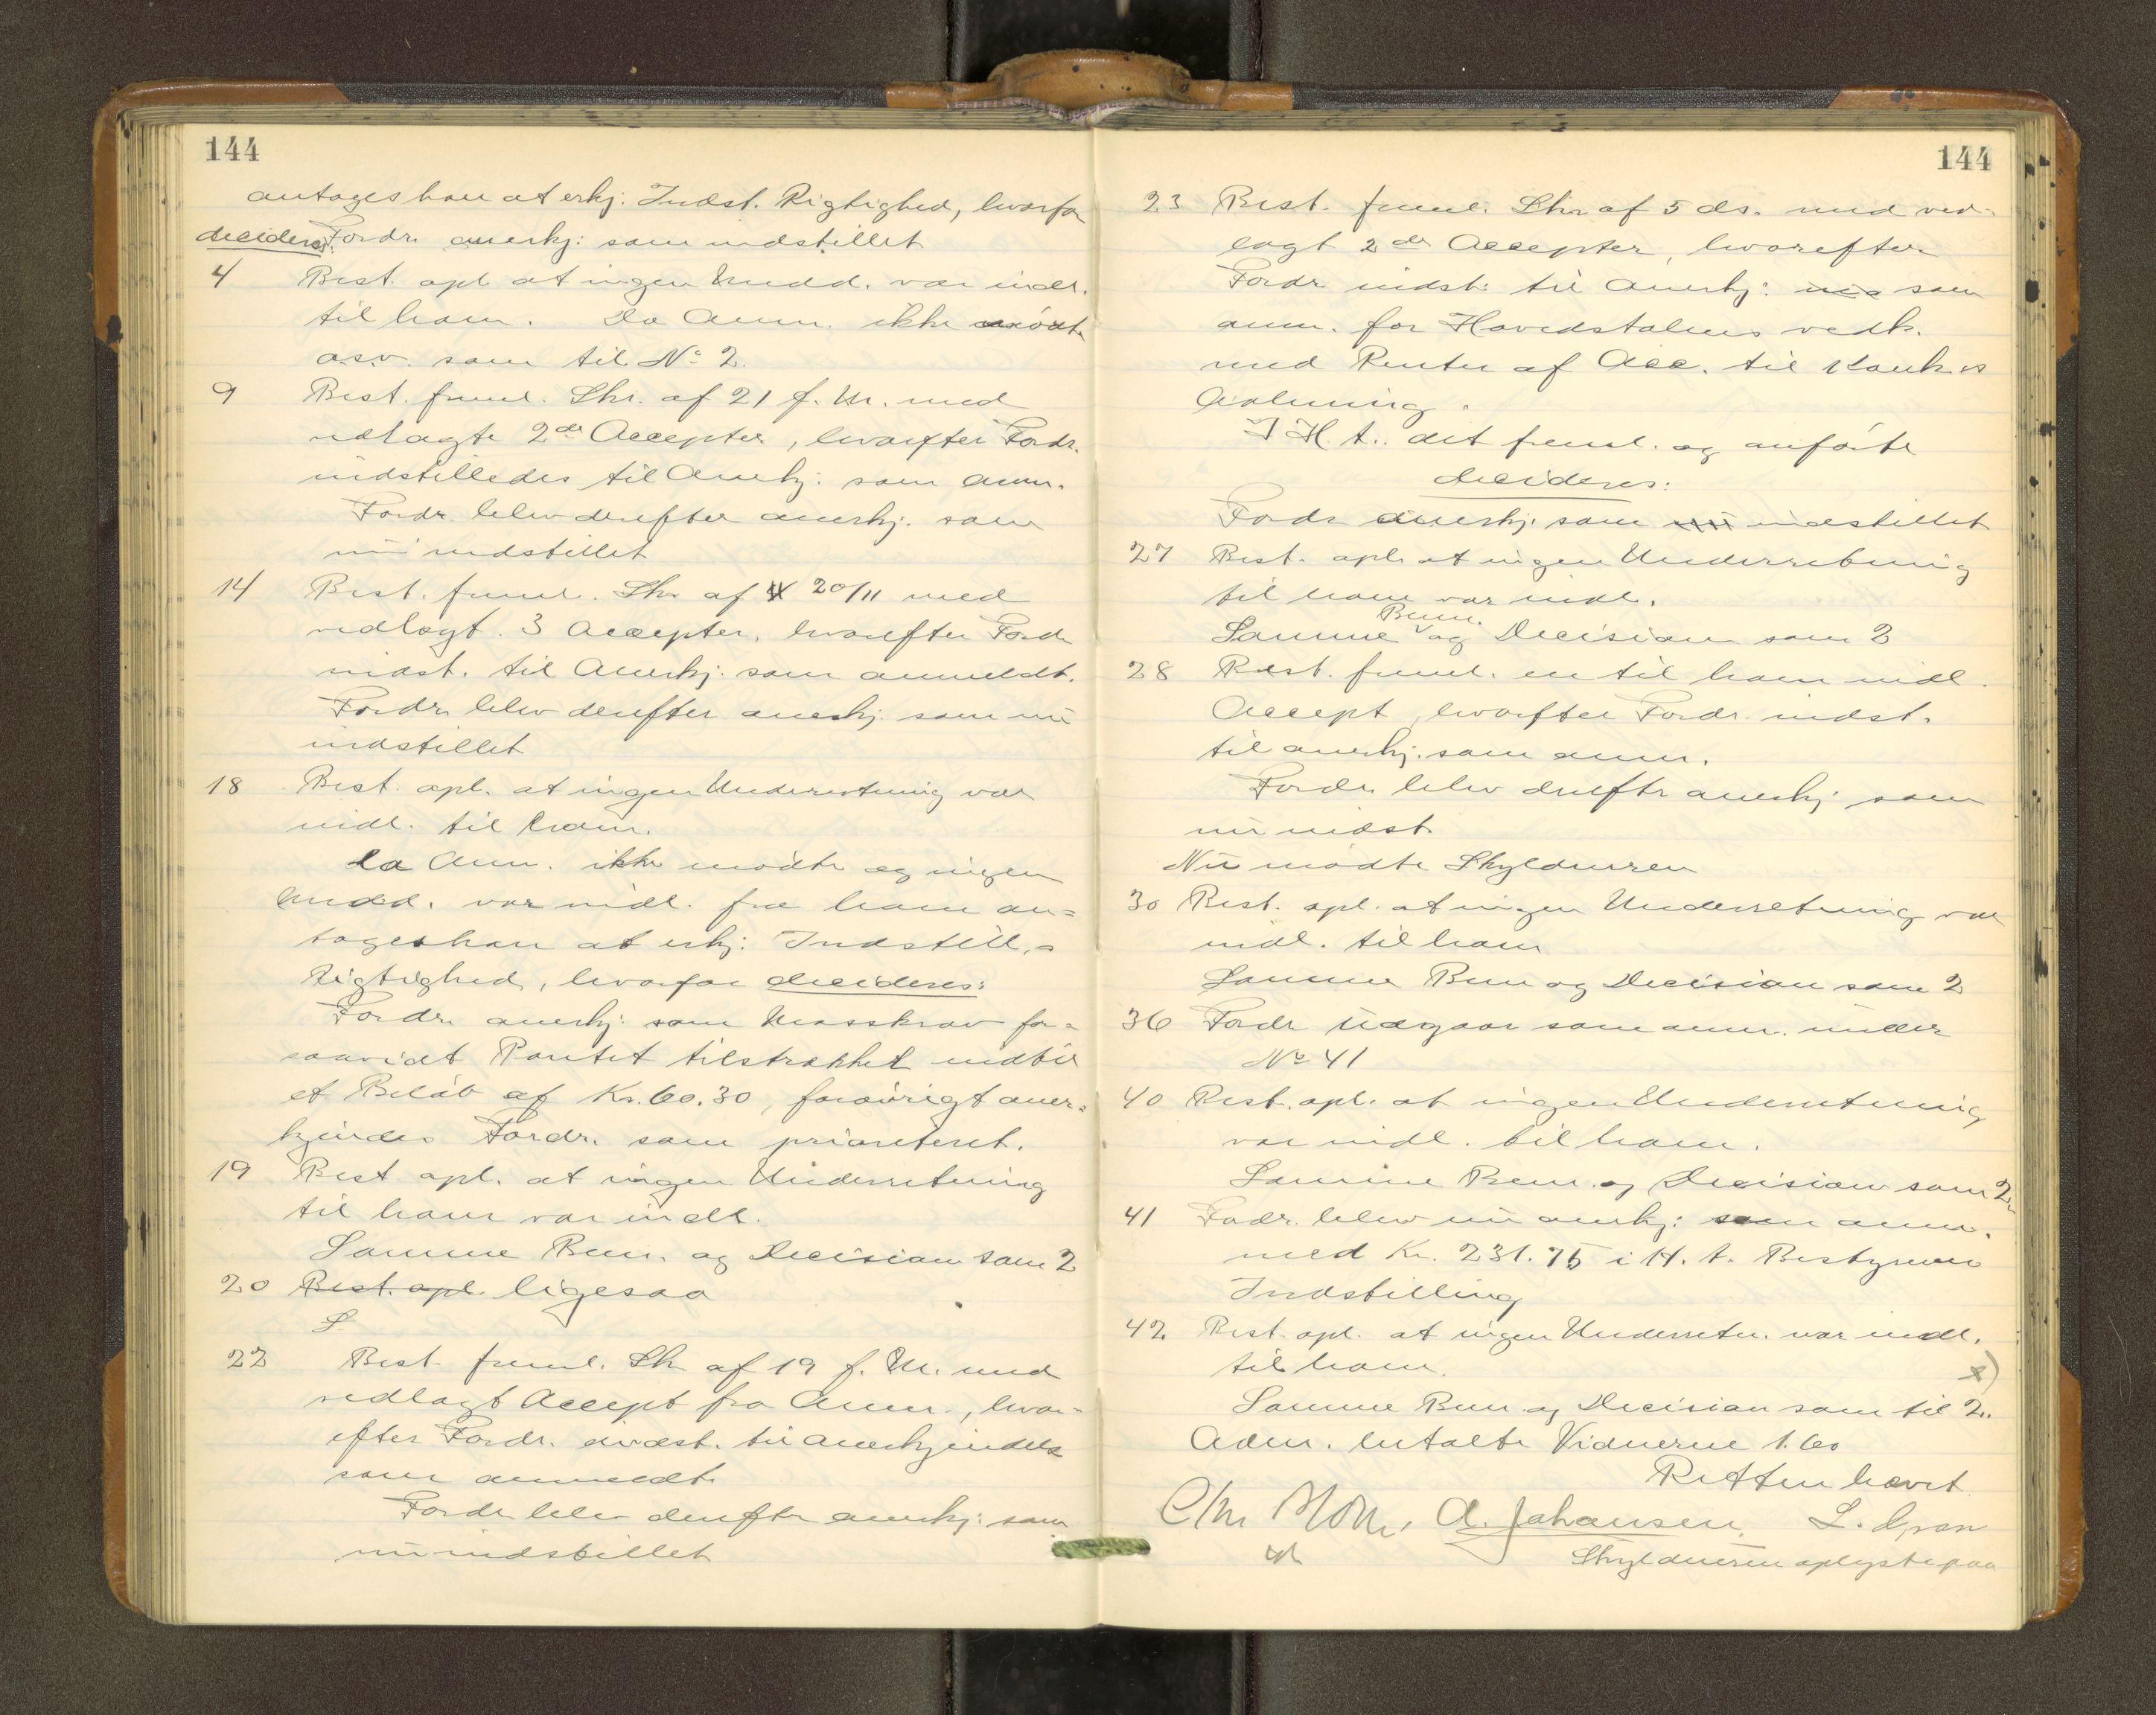 144
antages han at erkj. Indst. Rigtighed, hvorfor
decideres: Fordr. anerkj: som indstillet
4 Best. opl. at ingen Undd. var indl.
til ham. Da Anm. ikke mödte
o.s.v. som til No 2.
9 Best. freml. Skr. af 21 f. M. med
vedlagte 2de Accepter, hvorefter Fordr.
indstilledes til Anerkj. som anm.
Fordr. blev derefter anerkj. som
nu indstillet
14 Best. freml. Skr af 20/11 med
vedlagt 3 Accepter, hvorefter Fordr
indst. til Anerkj. som anmeldt.
Fordr. blev derefter anerkj. som nu
indstillet
18 Best. opl. at ingen Underretning var
indl. til ham.
Da Anm. ikke mödte og ingen
Undd. var indl. fra ham an-
tages han at erkj: Indstill.s
Rigtighed, hvorfor decideres:
Fordr. anerkj. som Massekrav for-
saavidt Pantet tilstrækkel indtil
et Belöb af Kr. 60.30, forövrigt aner-
kjendes Fordr. som prioriteret.
19 Best opl. at ingen Underretning
til ham var indl.
Samme Bem. og Decision som 2
20 Best. opl. ligesaa
S
22 Best. freml. Skr af 19 f. M. med
vedlagt Accept fra Anm., hvor-
efter Fordr. indst. til anerkjendelse
som anmeldt.
Fordr blev derefter anerkj: som
nu indstillet
144
23 Best. freml. Skr af 5 ds. med ved-
lagt 2de Accepter, hvorefter
Fordr indst: til Anerkj: som
anm. for Hovedstolens vedk.
med Renter af Acc. til Konk.s
Aabning.
I H. t. det freml. og anförte
decideres:
Fordr anerkj. som nu indstillet
27 Best. opl. at ingen Underretning
til ham var indl.
Samme Bem. og Decision som 2
28 Best. freml. en til ham indl.
Accept, hvorefter Fordr. indst.
til anerkj. som anm.
Fordr. blev derefter anerkj. som
nu indst.
Nu mödte Skyldneren
30 Best. opl. at ingen Underretning var
indl. til ham
Samme Bem og Decision som 2
36 Fordr udgaar som anm. under
No 41
40 Best. opl. at ingen Underretning
var indl. til ham.
Samme Bem. og Decision som 2
41 Fordr. blev nu anerkj: som anm.
med Kr. 231.75 i H. t. Bestyrerens
Indstilling
42 Best. opl. at ingen Underretn. var indl.
til ham. x)
Samme Bem og Decision som til 2.
Adm. betalte Vidnerne 1.60
Retten hævet
Chr A. Johansen. L.
Skyldneren oplyste paa